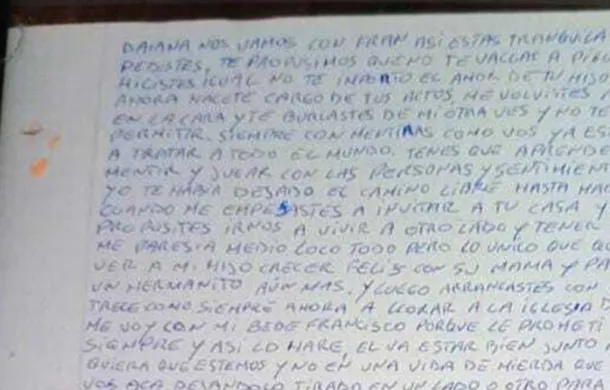 DAIANA NOS VAMOS CON FRAN ASI ESTAS TRANQUILA
PEDISTES, TE PROPUSIMOS QUE NO TE VALLAS A
HICISTES IGUAL NO TE INPORTO EL AMOR DE TU HIJO
AHORA HACETE CARGO DE TUS ACTOS, ME VOLVISTES A
EN LA CARA Y TE BURLASTES DE MI OTRA VES Y NO TE
PERMITIR, SIEMPRE CON MENTIRAS COMO VOS YA ES
A TRATAR A TODO EL MUNDO. TENES QUE APRENDE
MENTIR Y JUGAR CON LAS PERSONAS Y SENTIMIEN
YO TE HABIA DEJADO EL CAMINO LIBRE HASTA HA
CUANDO ME EMPESASTES A INVITAR A TU CASA Y
PROPUSITES IRNOS A VIVIR A OTRO LADO Y TENER
ME PARESIA MEDIO LOCO TODO PERO LO UNICO QUE QU
VER A MI HIJO CRECER FELIS CON SU MAMA Y PA
UN HERMANITO AÚN MAS. Y LUEGO ARRANCASTES CON
TRECE COMO SIEMPRE AHORA A LLORAR A LA IGLESIA
ME VOY CON MI BEBE FRANCISCO PORQUE LE PROMETI
SIEMPRE Y ASI LO HARE, EL VA ESTAR BIEN JUNTO A
QUIERA QUE ESTEMOS Y NO EN UNA VIDA DE MIERDA QUE
VOS ACA DEJANDOLO TIRADO EN UN LADO O OTRO PARA